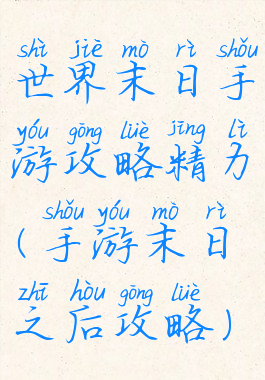 shì jiè mò rì shǒu
世界末日手
yóu gōng lüè jīng lì
游攻略精力
shǒu yóu mò rì
(手游末日
zhī hòu gōng lüè
之后攻略)